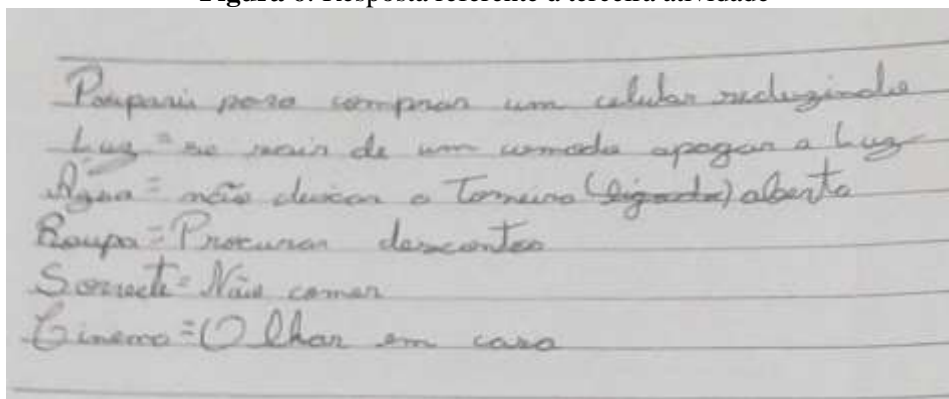 Figura 6: Resposta referente a terceira atividade
Pouparia para comprar um celular reduzindo
Luz = se sair de um comodo apagar a luz
Água = não deixar a Torneira (ligada) aberta
Roupa = Procurar descontos
Sorvete = Não comer
Cinema = Olhar em casa